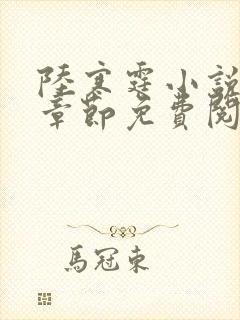 陸寒霆小說
章節免費閱
馬冠東